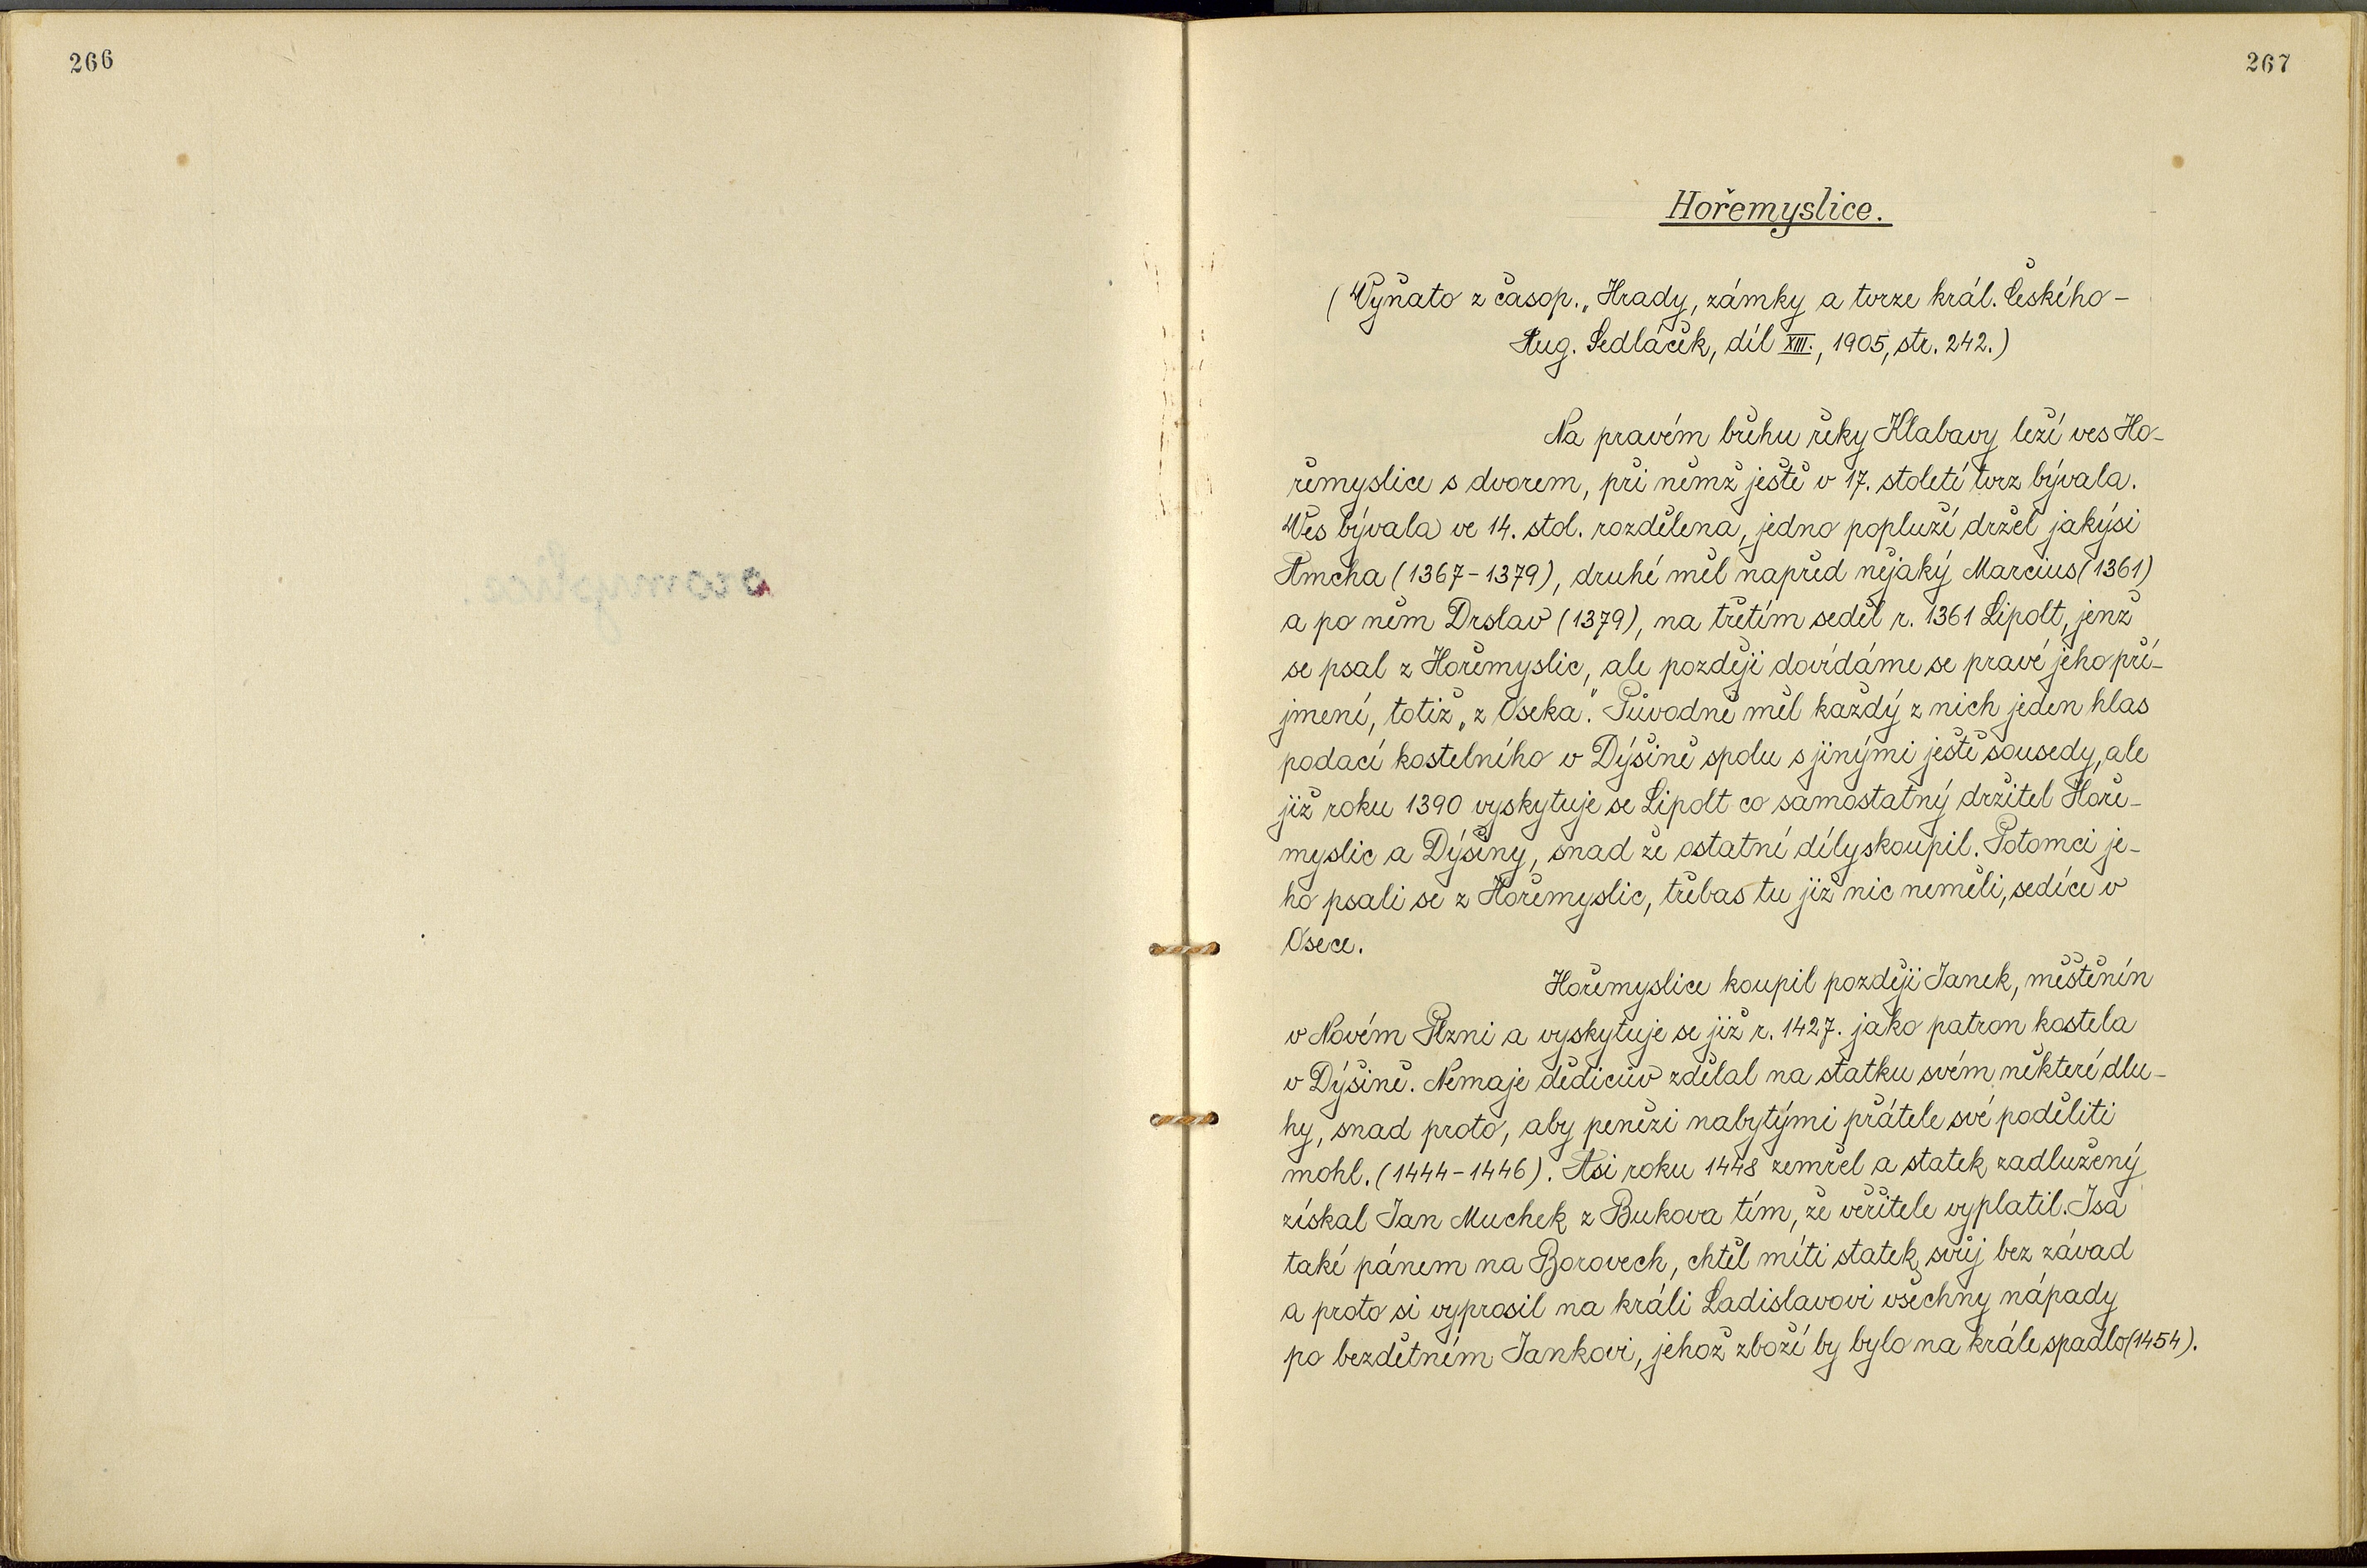 266
267
Hořemyslice.
(Vyňato z časop. „Hrady, zámky a tvrze král. českého –
Aug. Sedláček, díl XIII., 1905, str. 242.)
Na pravém břehu řeky Klabavy leží ves Ho-
řemyslice s dvorem, při němž ještě v 17. století tvrz bývala.
Ves bývala ve 14. stol. rozdělena, jedno popluží držel jakýsi
Amcha (1367-1379), druhé měl napřed nějaký Marcius (1361)
a po něm Drslav (1379), na třetím seděl r. 1361 Lipolt, jenž
se psal z Hořemyslic, ale později dovídáme se pravé jeho pří-
jmení, totiž „z Oseka". Původně měl každý z nich jeden hlas
podací kostelního v Dýšině spolu s jinými ještě sousedy, ale
již roku 1390 vyskytuje se Lipolt co samostatný držitel Hoře-
myslic a Dýšiny, snad že ostatní díly skoupil. Potomci je-
ho psali se z Hořemyslic, třebas tu již nic neměli, sedíce v
Osece.
Hořemyslice koupil později Janek, měštěnín
v Novém Plzni a vyskytuje se již r. 1427. jako patron kostela
v Dýšině. Nemaje dědicův zdělal na statku svém některé dlu-
hy, snad proto, aby penězi nabytými přátele své poděliti
mohl. (1444-1446). Asi roku 1448 zemřel a statek zadlužený
získal Jan Muchek z Bukova tím, že věřitele vyplatil. Jsa
také pánem na Borovech, chtěl míti statek svůj bez závad
a proto si vyprosil na králi Ladislavovi všechny nápady
po bezdětném Jankovi, jehož zboží by bylo na krále spadlo (1454).